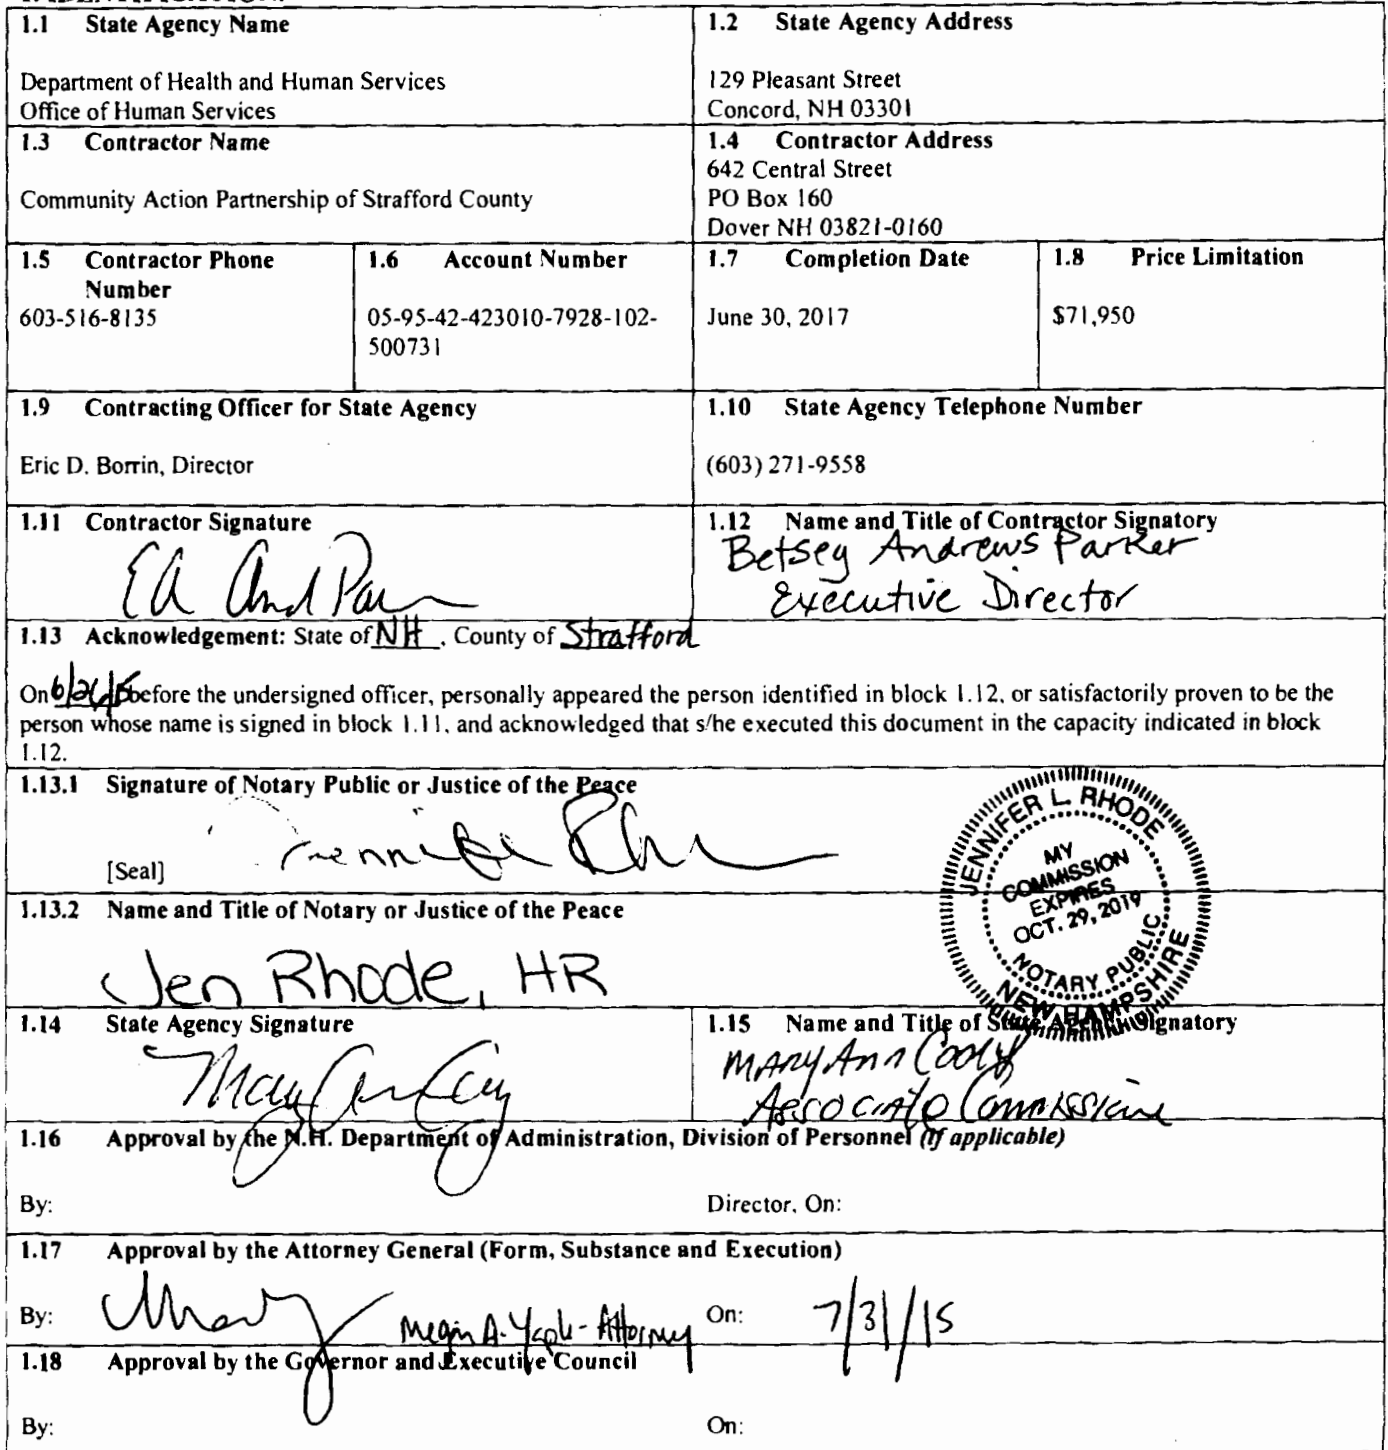 1.1 State Agency Name
Department of Health and Human Services
Office of Human Services
1.2 State Agency Address
129 Pleasant Street
Concord, NH 03301
1.3 Contractor Name
Community Action Partnership of Strafford County
1.4 Contractor Address
642 Central Street
PO Box 160
Dover NH 03821-0160
1.5 Contractor Phone
Number
603-516-8135
1.6 Account Number
05-95-42-423010-7928-102-
500731
1.7 Completion Date
June 30, 2017
1.8 Price Limitation
$71,950
1.9 Contracting Officer for State Agency
Eric D. Borrin, Director
1.10 State Agency Telephone Number
(603) 271-9558
1.11 Contractor Signature
1.12 Name and Title of Contractor Signatory
Betsey Andrews Parker
Executive Director
1.13 Acknowledgement: State of NH, County of Strafford
On 6/26/15 before the undersigned officer, personally appeared the person identified in block 1.12, or satisfactorily proven to be the
person whose name is signed in block 1.11, and acknowledged that s/he executed this document in the capacity indicated in block
1.12.
1.13.1 Signature of Notary Public or Justice of the Peace
[Seal]
JENNIFER L. RHODE
MY
COMMISSION
EXPIRES
OCT. 29, 2019
NOTARY PUBLIC
NEW HAMPSHIRE
1.13.2 Name and Title of Notary or Justice of the Peace
Jen Rhode, HR
1.14 State Agency Signature
1.15 Name and Title of State Agency Signatory
Mary Ann Cooley
Associate Commissioner
1.16 Approval by the N.H. Department of Administration, Division of Personnel (if applicable)
By:
Director, On:
1.17 Approval by the Attorney General (Form, Substance and Execution)
By: Megan A. Yaple - Attorney
On: 7/31/15
1.18 Approval by the Governor and Executive Council
By:
On: